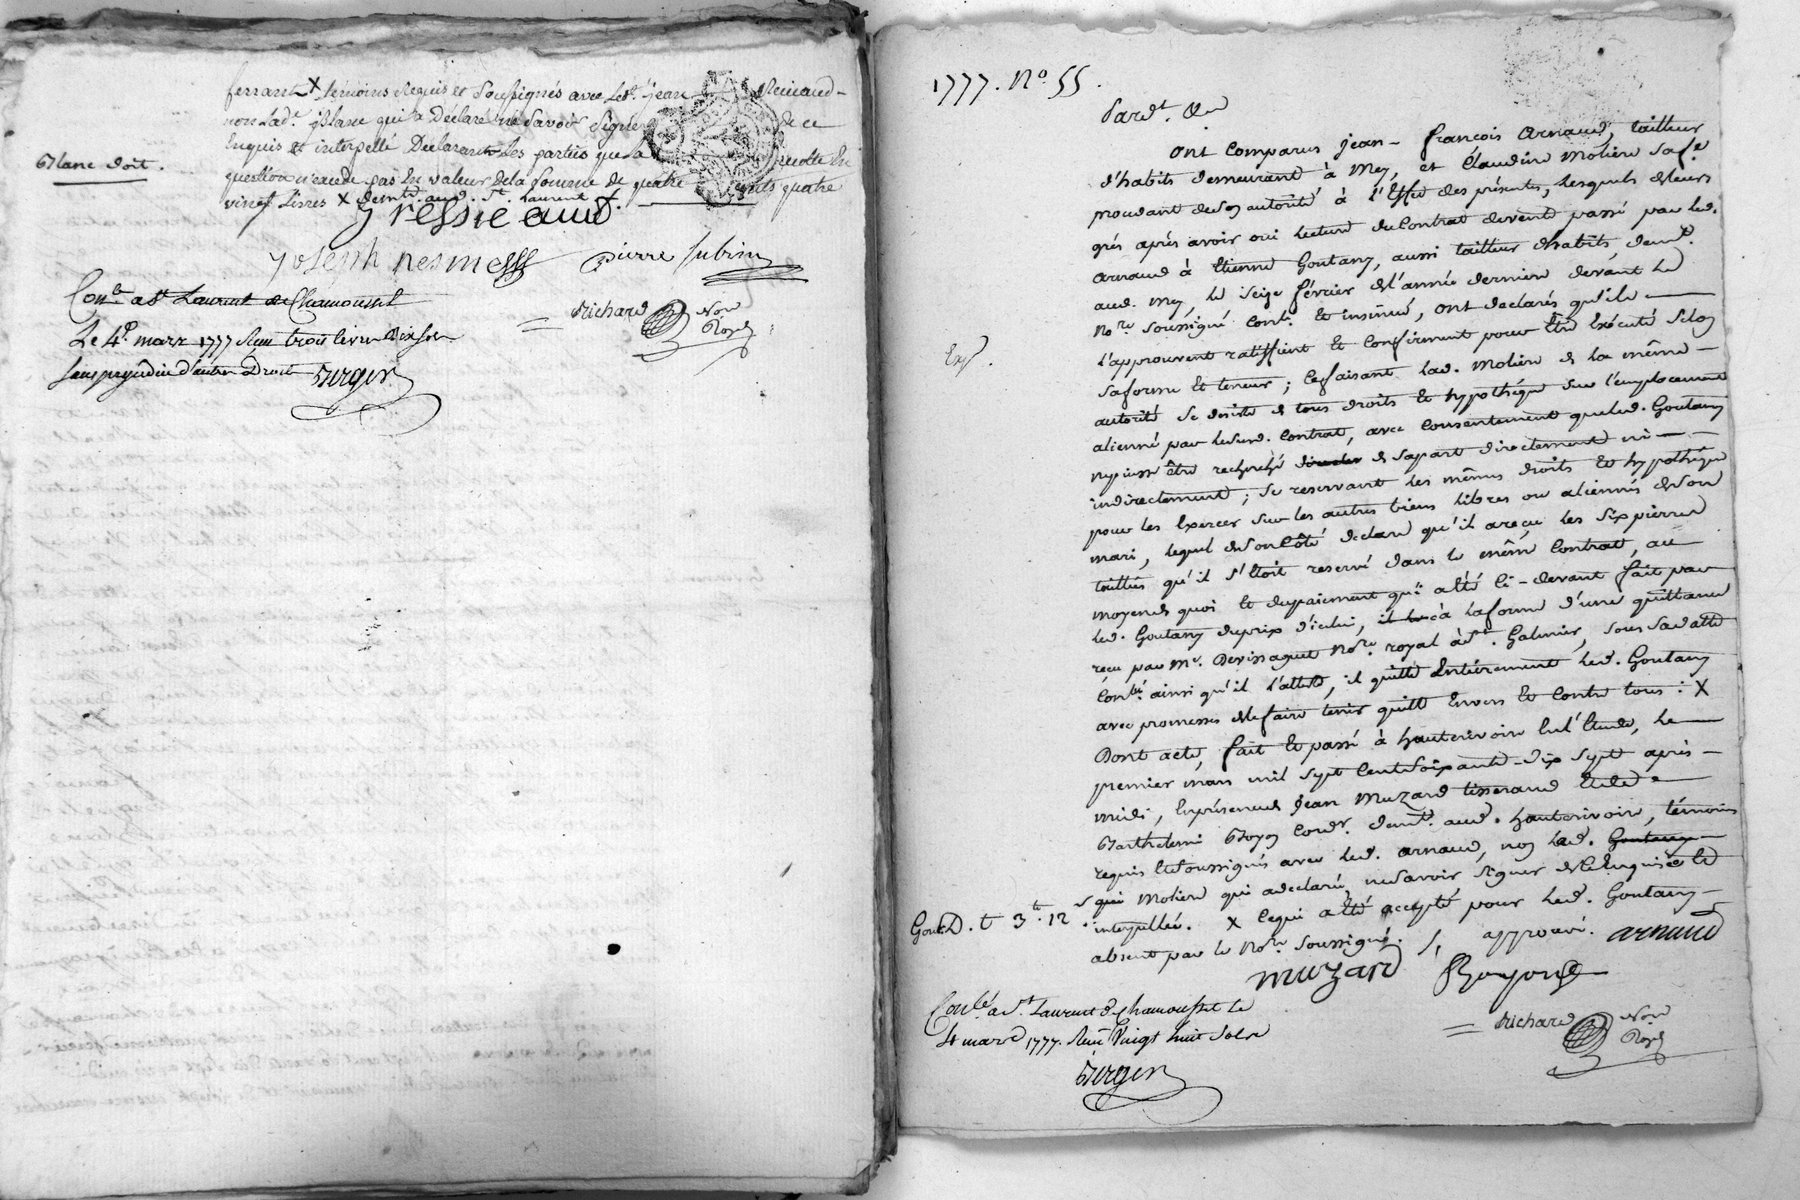 ferrant X témoins Requis et Soussignés avec led. jean
non lad. Blanc qui a Déclaré ne Savoir Signer de ce
Enquis et interpellé Declarants les parties que la recolte En
question n'excede pas la valeur de la somme de quatre cents quatre
vingt Livres X dem.t aud. S.t Laurent
Blanc doit.
gressieaud
joseph nesme pierre subrin
Richard Nore Royal
Con.lé a S.t Laurent de Chamousset
Le 4.e mars 1777 Reçu trois livres Dix sols
sans prejudice d'autres Droits Berger
1777. N.o 55.
Pard.t &a
Ont comparus jean-françois Arnaud, tailleur
d'habits demeurant à Mey, et Claudine Molière sa fe
procédant de son autorité à l'Effet des présentes, lesquels de leurs
grés après avoir oui lecture du Contrat devente passé par led.
Arnaud à Etienne Goutany, aussi tailleur d'habits, dem.t
aud. Mey, le seize février de l'année derniere devant le
No.re soussigné Conl. Et insinué, ont declarés qu'ils
l'approuvent ratiffient Et Confirment pour Etre Exécuté selon
sa forme Et teneur; Ce faisant lad. Molière de la même
autorité se désiste de tous droits Et hypothéque sur l'emplacement
aliénné par lesusd. Contrat, avec Consentement que led. Goutany
n'y puisse être recherché de sa part directement ni
indirectement; se reservant les mêmes droits Et hypothéque
pour les Exercer sur les autres biens libres ou aliennés de son
mari, lequel de son Côté declare qu'il a reçu les six pierres
taillées qu'il s'étoit reservé dans le même Contrat, au
moyen de quoi Et du paiement qui a été Ci-devant fait par
led. Goutany du prix d'icelui, à la forme d'une quittance
reçu par M.e Devissaguet No.re royal à S.t Galmier, sous sa datte
Conl.é ainsi qu'il l'atteste, il quitte Entièrement led. Goutany
avec promesses de le faire tenir quitte Envers Et Contre tous: X
Dont acte, fait Et passé à hauterivoire En l'Etude, le
premier mars mil sept Cent soixante-dix sept après-
midi, En présence de jean Muzard tisserand Et de
Barthelemi Boyon Cord.r dem.t aud. hauterivoire, témoins
requis Et soussignés avec led. Arnaud, non lad. Goutany
qui Molière qui a declaré ne savoir signer de ce Enquise Et
interpellée. X Ce qui a été accepté pour led. Goutany
absent par le No.re soussigné. approuvé. Arnaud
Exp.
Gout. D. t 3.tt 12.s
muzard Boyon
Richard Nore Royal
Con.lé a S.t Laurent de Chamousset le
4 mars 1777. Reçu Vingt huit sols
Berger